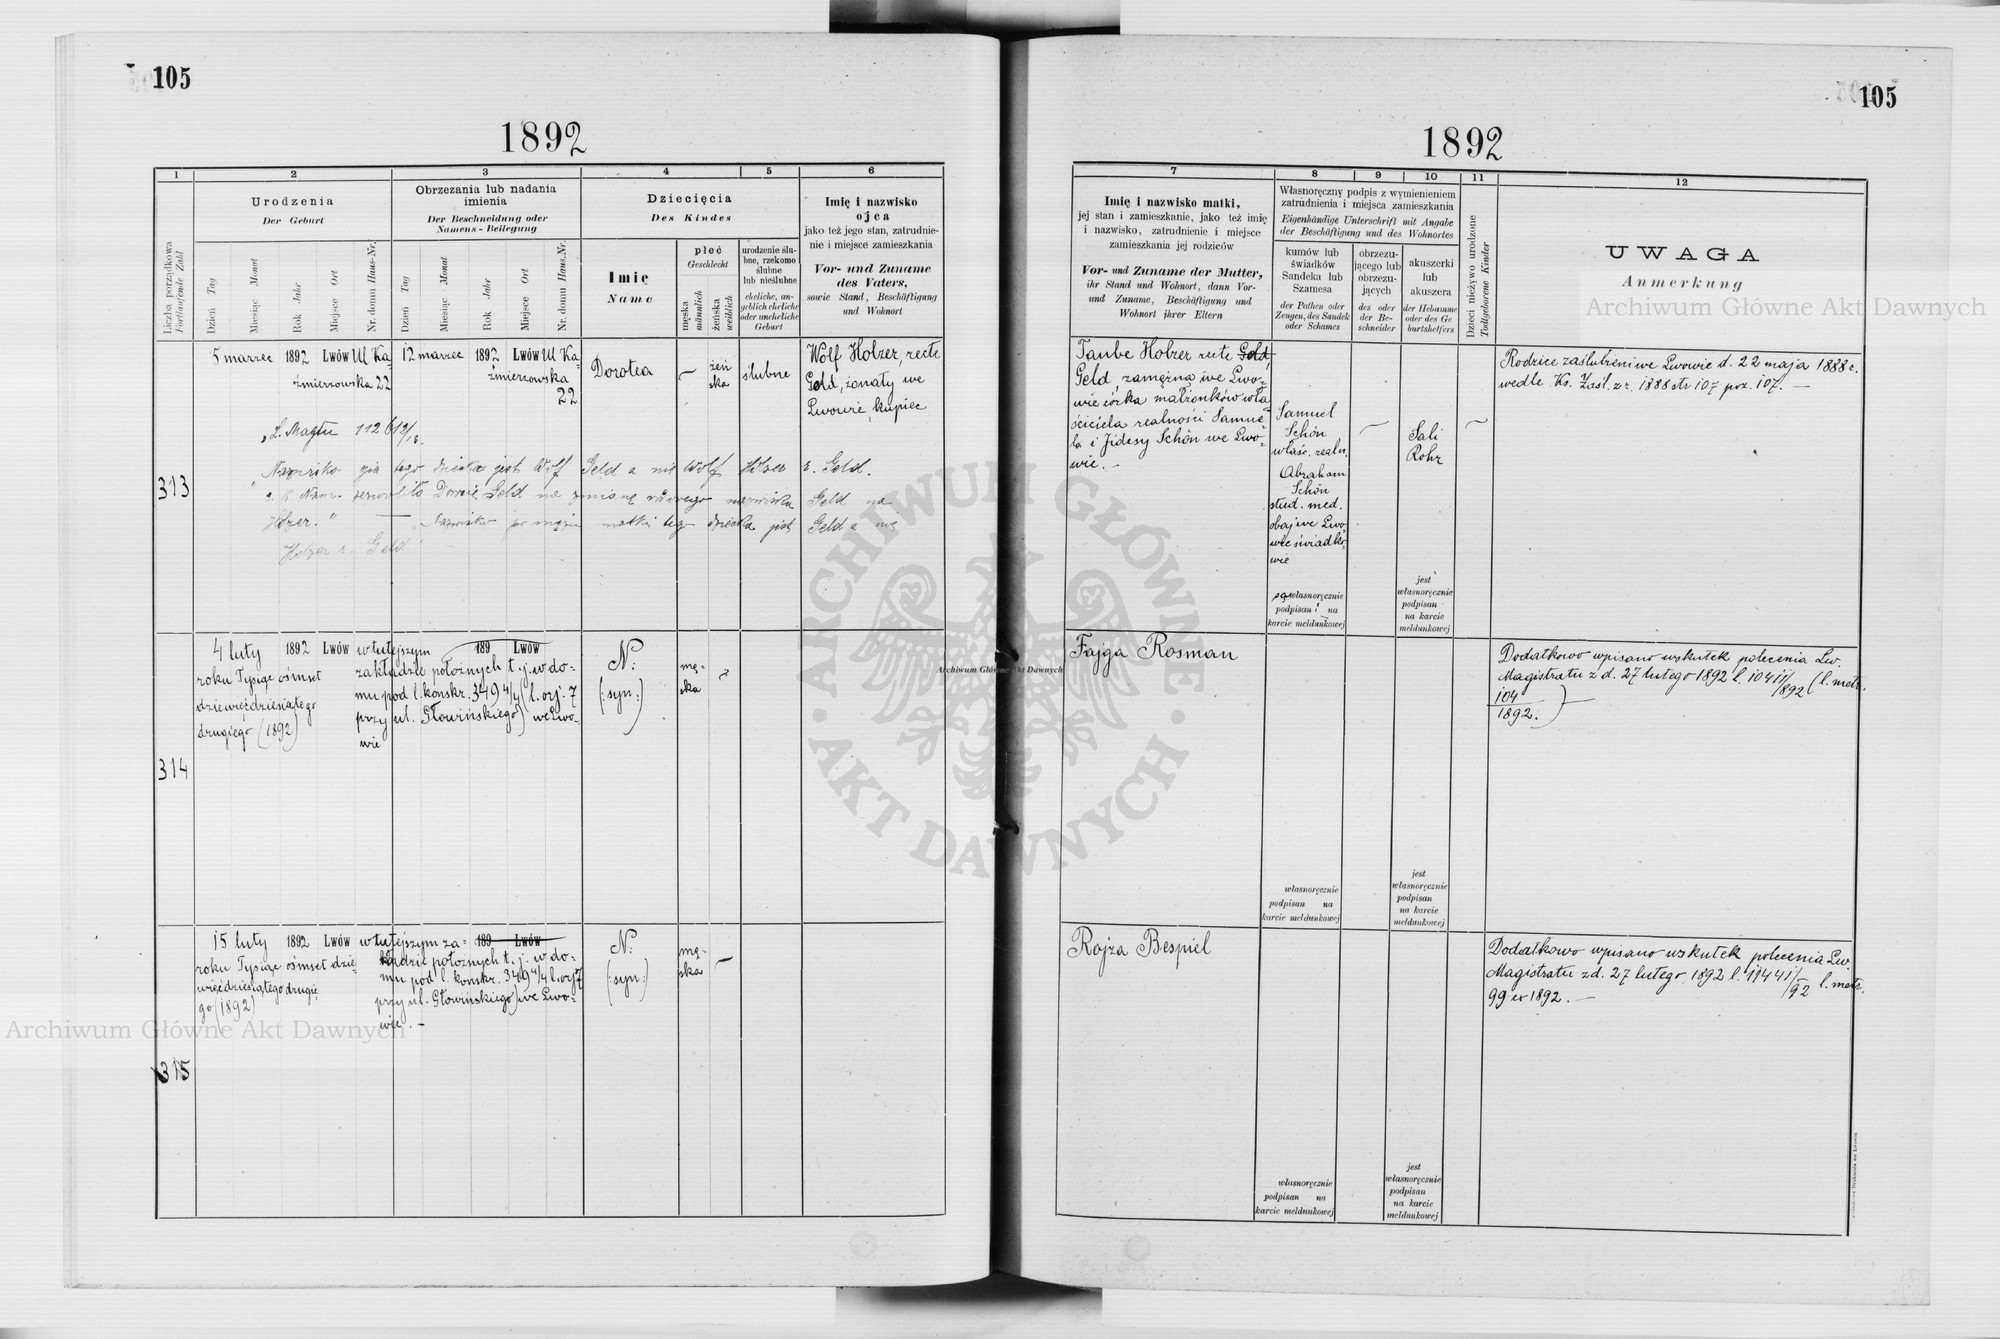 105
1892
1
2
3
4
5
6
Liczba porządkowa
Fortlaufende Zahl
Urodzenia
Der Geburt
Dzień Tag
Miesiąc Monat
Rok Jahr
Miejsce Ort
Nr. domu Haus-Nr.
Obrzezania lub nadania
imienia
Der Beschneidung oder
Namens-Beilegung
Dzień Tag
Miesiąc Monat
Rok Jahr
Miejsce Ort
Nr. domu Haus-Nr.
Dziecięcia
Des Kindes
Imię
Name
płeć
Geschlecht
męska
männlich
żeńska
weiblich
urodzenie ślu-
bne, rzekomo
ślubne
lub nieślubne
eheliche, an-
geblich eheliche
oder uneheliche
Geburt
Imię i nazwisko
ojca
jako też jego stan, zatrudnie-
nie i miejsce zamieszkania
Vor- und Zuname
des Vaters,
sowie Stand, Beschäftigung
und Wohnort
313
5 marzec 1892 Lwów Ul Ka-
źmierzowska 22
12 marzec 1892 Lwów Ul Ka-
źmierzowska
22
Dorotea
żeń
ska
ślubne
Wolf Holzer, recte
Geld, żonaty we
Lwowie, kupiec
L. Magtu 112612/18.
"Nazwisko ojca tego dziecka jest Wolf Geld a nie Wolf Holzer r. Geld.
c. k. Nam. zezwoliło Dorocie Geld na zmianę nazwiska Geld na
Holzer." — Nazwisko po mężu matki tego dziecka jest Geld a nie
Holzer r. Geld"
314
4 luty 1892 Lwów w tutejszym
roku Tysiąc ośmset
dziewięćdziesiątego
drugiego (1892)
189 Lwów
zakładzie położnych t. j. w do-
mu pod l. konskr. 349 4/4 (l. orj. 7
przy ul. Głowińskiego) we Lwo-
wie
N:
(:syn:)
mę-
ska
315
15 luty 1892 Lwów w tutejszym za-
roku Tysiąc ośmset dzie-
więćdziesiątego drugie-
go (1892)
189 Lwów
kładzie położnych t. j. w do-
mu pod l. konskr. 349 4/4 l. orj 7
przy ul. Głowińskiego) we Lwo-
wie. —
N:
(:syn:)
mę-
ska
105
1892
7
8
9
10
11
12
Imię i nazwisko matki,
jej stan i zamieszkanie, jako też imię
i nazwisko, zatrudnienie i miejsce
zamieszkania jej rodziców
Vor- und Zuname der Mutter,
ihr Stand und Wohnort, dann Vor-
und Zuname, Beschäftigung und
Wohnort ihrer Eltern
Własnoręczny podpis z wymienieniem
zatrudnienia i miejsca zamieszkania
Eigenhändige Unterschrift mit Angabe
der Beschäftigung und des Wohnortes
kumów lub
świadków
Sandeka lub
Szamesa
der Pathen oder
Zeugen, des Sandek
oder Schames
obrzezu-
jącego lub
obrzezu-
jących
des oder
der Be-
schneider
akuszerki
lub
akuszera
der Hebamme
oder des Ge
burtshelfers
Dzieci nieżywo urodzone
Todtgeborene Kinder
UWAGA
Anmerkung
Taube Holzer recte Gold,
Geld, zamężna we Lwo-
wie córka małżonków wła-
ściciela realności Samue-
la i Jidesy Schön we Lwo-
wie. —
Samuel
Schön
właśc. realn.
Abraham
Schön
stud. med.
obaj we Lwo-
wie świadko-
wie
są własnoręcznie
podpisani na
karcie meldunkowej
Sali
Rohr
jest
własnoręcznie
podpisan
na karcie
meldunkowej
Rodzice zaślubieni we Lwowie d. 22 maja 1888 r.
wedle Ks. Zaśl. z r. 1888 str 107 poz. 107. —
Fajga Rosman
własnoręcznie
podpisan na
karcie meldunkowej
jest
własnoręcznie
podpisan
na karcie
meldunkowej
Dodatkowo wpisano wskutek polecenia Lw.
Magistratu z d. 27 lutego 1892 l. 10411/1892 (l. metr.
104
1892.) —
Rojza Bespiel
własnoręcznie
podpisan na
karcie meldunkowej
jest
własnoręcznie
podpisan
na karcie
meldunkowej
Dodatkowo wpisano wskutek polecenia Lw.
Magistratu z d. 27 lutego 1892 l. 11441/92 l. metr.
99 ex 1892. —
Archiwum Główne Akt Dawnych
Archiwum Główne Akt Dawnych
Archiwum Główne Akt Dawnych
ARCHIWUM GŁÓWNE
AKT DAWNYCH